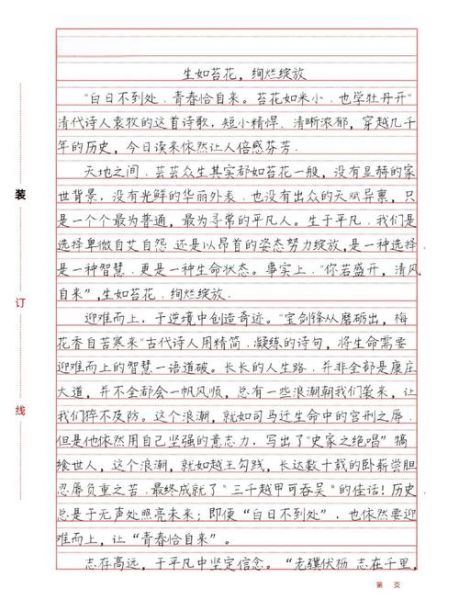 生如苔花，绚烂绽放
“白日不到处，青春恰自来。苔花如米小，也学牡丹开”
清代诗人袁牧的这首诗歌，短小精悍、清晰浓郁，穿越几千
年的历史，今日读来依然让人倍感芬芳。
天地之间，芸芸众生其实都如苔花一般，没有显赫的家
世背景，没有光鲜的华丽外表，也没有出众的天赋异禀，只
是一个个最为普通，最为寻常的平凡人。生于平凡，我们是
选择卑微自艾自怨，还是以昂首的姿态努力绽放，是一种选择
是一种智慧，更是一种生命状态。事实上，“你若盛开，清风
自来”，生如苔花，绚烂绽放.
迎难而上，于逆境中创造奇迹。“宝剑锋从磨砺出，梅
花香自苦寒来”古代诗人用精简、凝练的诗句，将生命需要
迎难而上的智慧一语道破。长长的人生路，并非全部是康庄
大道，并不全部会一帆风顺，总有一些浪潮朝我们袭来，让
我们猝不及防。这个浪潮，就如司马迁生命中的宫刑之辱，
但是他依然用自己坚强的意志力，写出了“史家之绝唱”犒
飨世人，这个浪潮，就如越王勾践，长达数十载的卧薪尝胆
忍辱负重之苦，最终成就了“三千越甲可吞吴”的佳话！历史
总是于无声处照亮未来；即便“白日不到处”，也依然要迎
难而上，让“青春恰自来”。
志存高远，于平凡中坚定信念。“老骥伏枥，志在千里，
装
订
线
第 页